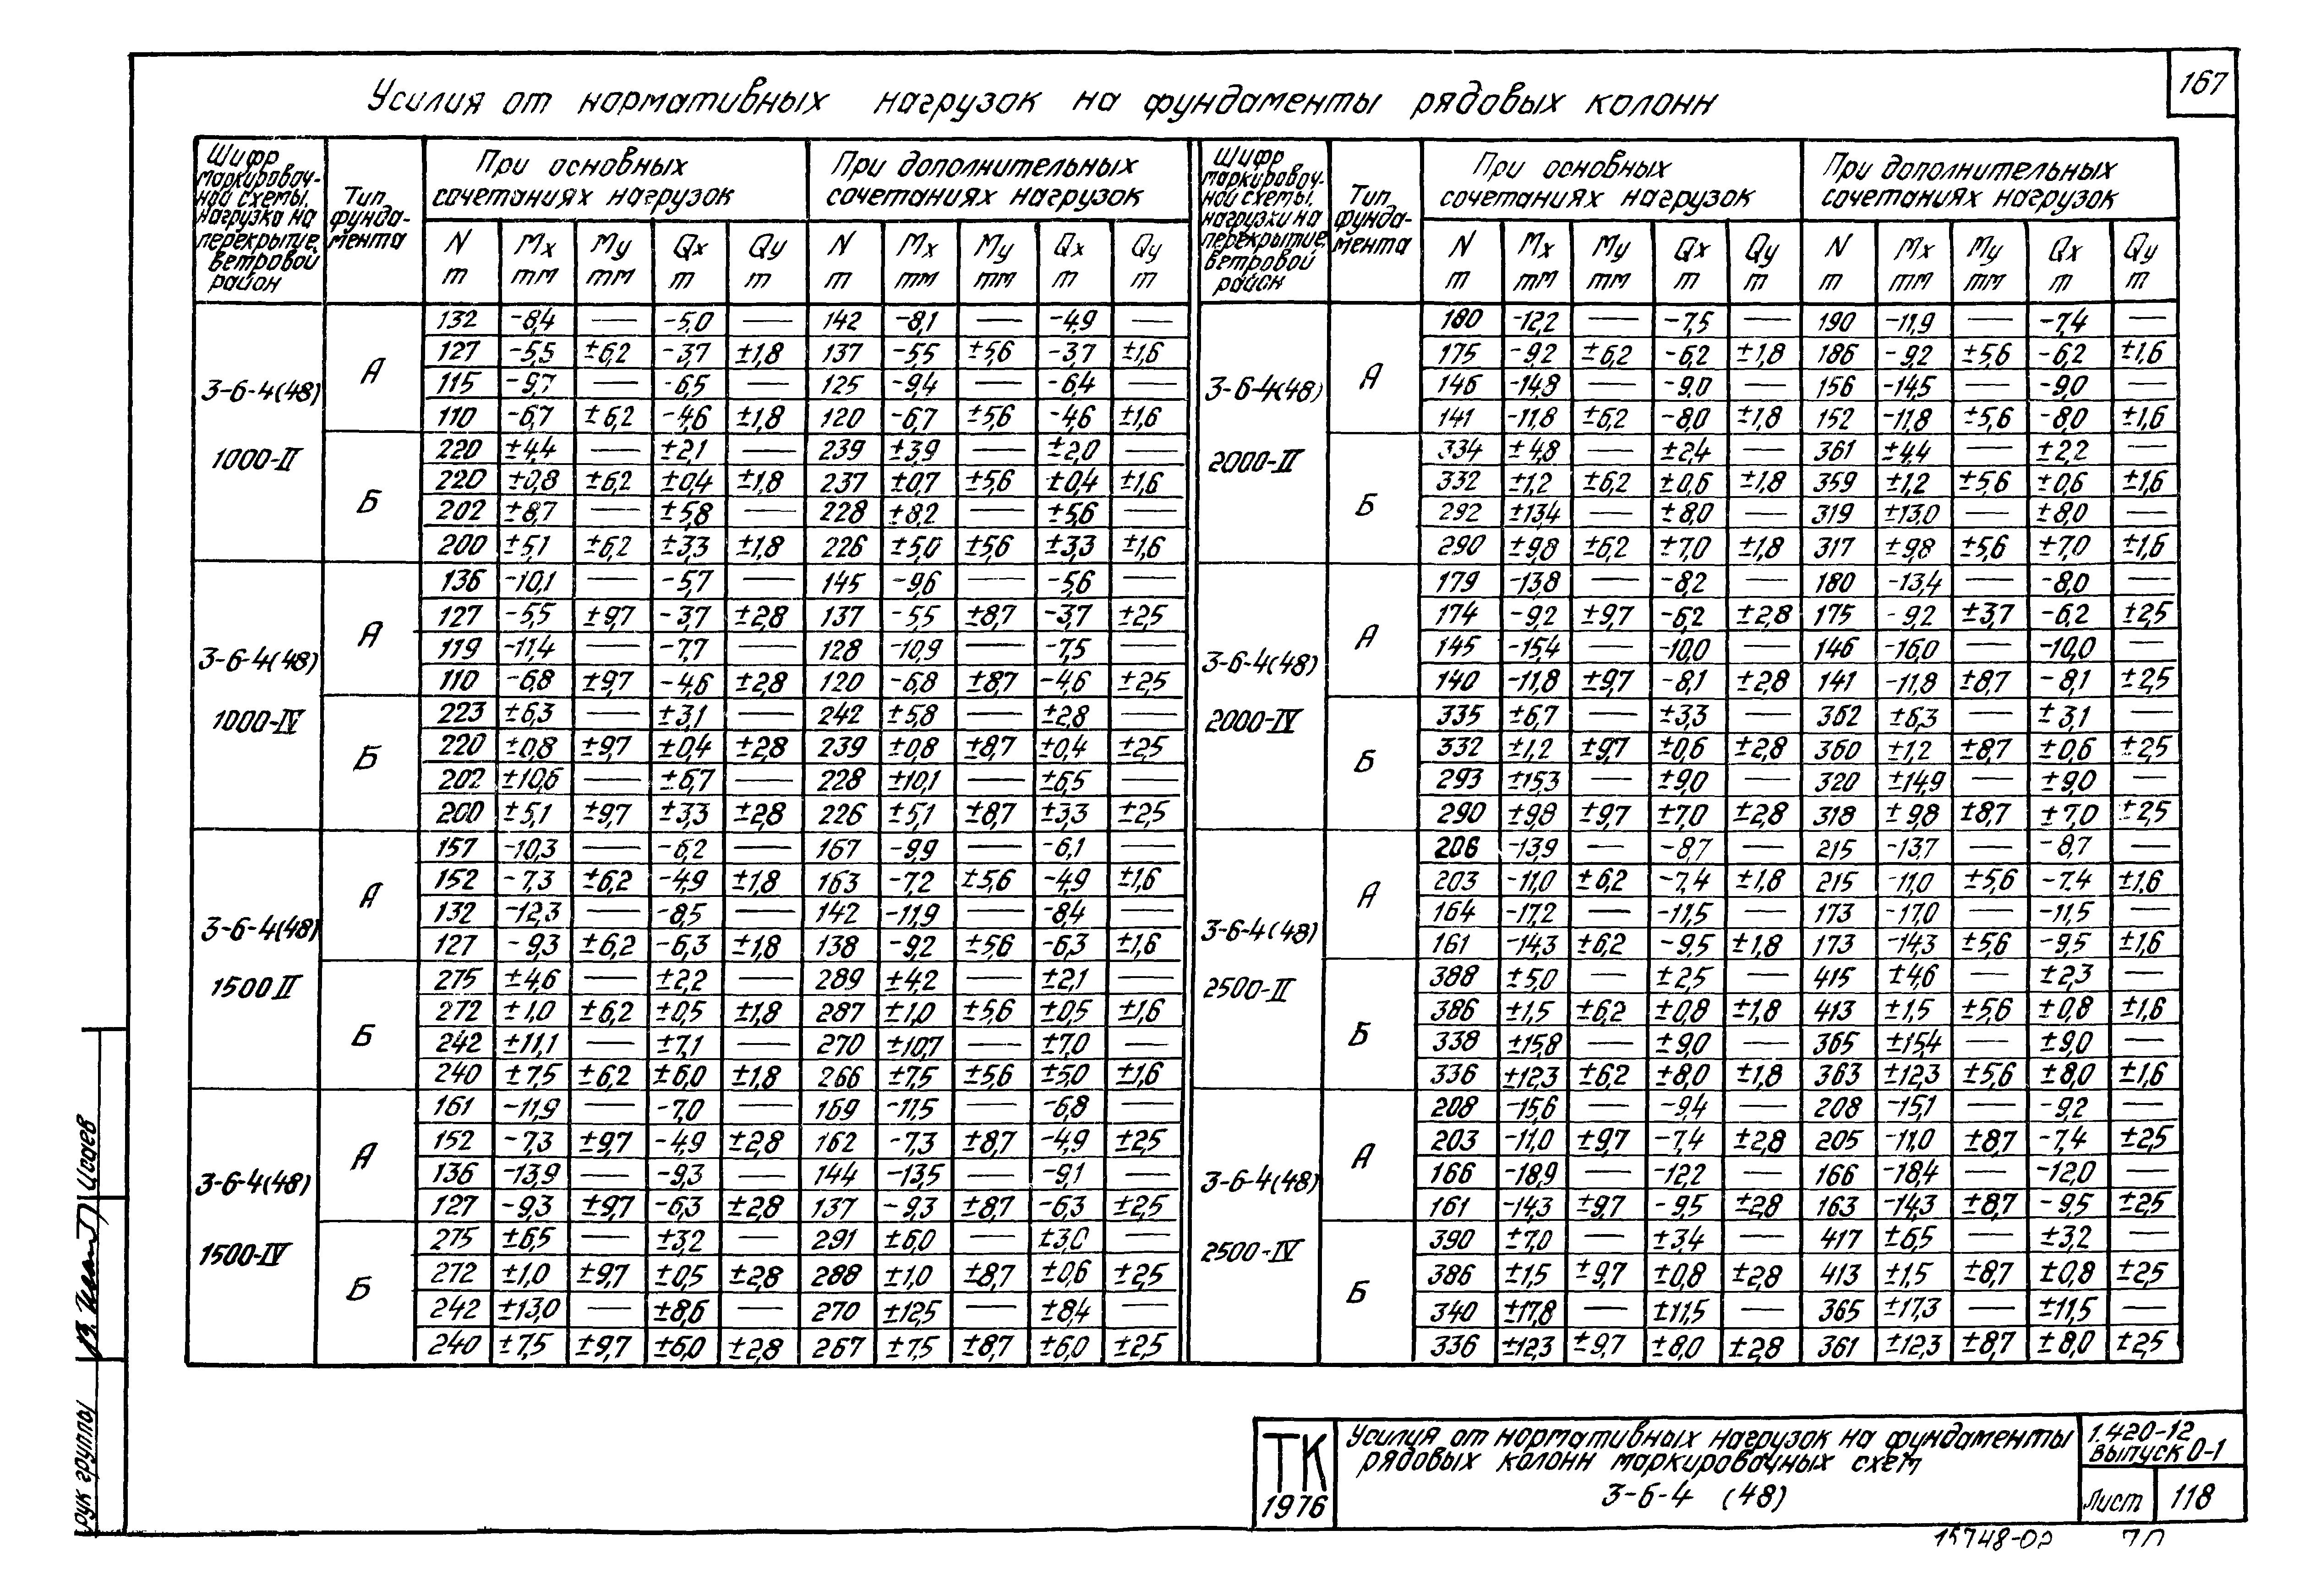 167
Усилия от нормативных нагрузок на фундаменты рядовых колонн
Шифр маркировоч-ной схемы, нагрузка на перекрытие, ветровой район | Тип фунда-мента | При основных сочетаниях нагрузок | При дополнительных сочетаниях нагрузок
N т | Mx тм | My тм | Qx т | Qy т | N т | Mx тм | My тм | Qx т | Qy т
3-6-4(48) 1000-II
А
132 -8,4 — -5,0 — 142 -8,1 — -4,9 —
127 -5,5 ±6,2 -3,7 ±1,8 137 -5,5 ±5,6 -3,7 ±1,6
115 -9,7 — -6,5 — 125 -9,4 — -6,4 —
110 -6,7 ±6,2 -4,6 ±1,8 120 -6,7 ±5,6 -4,6 ±1,6
Б
220 ±4,4 — ±2,1 — 239 ±3,9 — ±2,0 —
220 ±0,8 ±6,2 ±0,4 ±1,8 237 ±0,7 ±5,6 ±0,4 ±1,6
202 ±8,7 — ±5,8 — 228 ±8,2 — ±5,6 —
200 ±5,1 ±6,2 ±3,3 ±1,8 226 ±5,0 ±5,6 ±3,3 ±1,6
3-6-4(48) 1000-IV
А
136 -10,1 — -5,7 — 145 -9,6 — -5,6 —
127 -5,5 ±9,7 -3,7 ±2,8 137 -5,5 ±8,7 -3,7 ±2,5
119 -11,4 — -7,7 — 128 -10,9 — -7,5 —
110 -6,8 ±9,7 -4,6 ±2,8 120 -6,8 ±8,7 -4,6 ±2,5
Б
223 ±6,3 — ±3,1 — 242 ±5,8 — ±2,8 —
220 ±0,8 ±9,7 ±0,4 ±2,8 239 ±0,8 ±8,7 ±0,4 ±2,5
202 ±10,6 — ±6,7 — 228 ±10,1 — ±6,5 —
200 ±5,1 ±9,7 ±3,3 ±2,8 226 ±5,1 ±8,7 ±3,3 ±2,5
3-6-4(48) 1500 II
А
157 -10,3 — -6,2 — 167 -9,9 — -6,1 —
152 -7,3 ±6,2 -4,9 ±1,8 163 -7,2 ±5,6 -4,9 ±1,6
132 -12,3 — -8,5 — 142 -11,9 — -8,4 —
127 -9,3 ±6,2 -6,3 ±1,8 138 -9,2 ±5,6 -6,3 ±1,6
Б
275 ±4,6 — ±2,2 — 289 ±4,2 — ±2,1 —
272 ±1,0 ±6,2 ±0,5 ±1,8 287 ±1,0 ±5,6 ±0,5 ±1,6
242 ±11,1 — ±7,1 — 270 ±10,7 — ±7,0 —
240 ±7,5 ±6,2 ±6,0 ±1,8 266 ±7,5 ±5,6 ±5,0 ±1,6
3-6-4(48) 1500-IV
А
161 -11,9 — -7,0 — 169 -11,5 — -6,8 —
152 -7,3 ±9,7 -4,9 ±2,8 162 -7,3 ±8,7 -4,9 ±2,5
136 -13,9 — -9,3 — 144 -13,5 — -9,1 —
127 -9,3 ±9,7 -6,3 ±2,8 137 -9,3 ±8,7 -6,3 ±2,5
Б
275 ±6,5 — ±3,2 — 291 ±6,0 — ±3,0 —
272 ±1,0 ±9,7 ±0,5 ±2,8 288 ±1,0 ±8,7 ±0,6 ±2,5
242 ±13,0 — ±8,6 — 270 ±12,5 — ±8,4 —
240 ±7,5 ±9,7 ±6,0 ±2,8 267 ±7,5 ±8,7 ±6,0 ±2,5
Шифр маркировоч-ной схемы, нагрузки на перекрытие, ветровой район | Тип фунда-мента | При основных сочетаниях нагрузок | При дополнительных сочетаниях нагрузок
N т | Mx тм | My тм | Qx т | Qy т | N т | Mx тм | My тм | Qx т | Qy т
3-6-4(48) 2000-II
А
180 -12,2 — -7,5 — 190 -11,9 — -7,4 —
175 -9,2 ±6,2 -6,2 ±1,8 186 -9,2 ±5,6 -6,2 ±1,6
146 -14,8 — -9,0 — 156 -14,5 — -9,0 —
141 -11,8 ±6,2 -8,0 ±1,8 152 -11,8 ±5,6 -8,0 ±1,6
Б
334 ±4,8 — ±2,4 — 361 ±4,4 — ±2,2 —
332 ±1,2 ±6,2 ±0,6 ±1,8 359 ±1,2 ±5,6 ±0,6 ±1,6
292 ±13,4 — ±8,0 — 319 ±13,0 — ±8,0 —
290 ±9,8 ±6,2 ±7,0 ±1,8 317 ±9,8 ±5,6 ±7,0 ±1,6
3-6-4(48) 2000-IV
А
179 -13,8 — -8,2 — 180 -13,4 — -8,0 —
174 -9,2 ±9,7 -6,2 ±2,8 175 -9,2 ±3,7 -6,2 ±2,5
145 -15,4 — -10,0 — 146 -16,0 — -10,0 —
140 -11,8 ±9,7 -8,1 ±2,8 141 -11,8 ±8,7 -8,1 ±2,5
Б
335 ±6,7 — ±3,3 — 362 ±6,3 — ±3,1 —
332 ±1,2 ±9,7 ±0,6 ±2,8 360 ±1,2 ±8,7 ±0,6 ±2,5
293 ±15,3 — ±9,0 — 320 ±14,9 — ±9,0 —
290 ±9,8 ±9,7 ±7,0 ±2,8 318 ±9,8 ±8,7 ±7,0 ±2,5
3-6-4(48) 2500-II
А
206 -13,9 — -8,7 — 215 -13,7 — -8,7 —
203 -11,0 ±6,2 -7,4 ±1,8 215 -11,0 ±5,6 -7,4 ±1,6
164 -17,2 — -11,5 — 173 -17,0 — -11,5 —
161 -14,3 ±6,2 -9,5 ±1,8 173 -14,3 ±5,6 -9,5 ±1,6
Б
388 ±5,0 — ±2,5 — 415 ±4,6 — ±2,3 —
386 ±1,5 ±6,2 ±0,8 ±1,8 413 ±1,5 ±5,6 ±0,8 ±1,6
338 ±15,8 — ±9,0 — 365 ±15,4 — ±9,0 —
336 ±12,3 ±6,2 ±8,0 ±1,8 363 ±12,3 ±5,6 ±8,0 ±1,6
3-6-4(48) 2500-IV
А
208 -15,6 — -9,4 — 208 -15,1 — -9,2 —
203 -11,0 ±9,7 -7,4 ±2,8 205 -11,0 ±8,7 -7,4 ±2,5
166 -18,9 — -12,2 — 166 -18,4 — -12,0 —
161 -14,3 ±9,7 -9,5 ±2,8 163 -14,3 ±8,7 -9,5 ±2,5
Б
390 ±7,0 — ±3,4 — 417 ±6,5 — ±3,2 —
386 ±1,5 ±9,7 ±0,8 ±2,8 413 ±1,5 ±8,7 ±0,8 ±2,5
340 ±17,8 — ±11,5 — 365 ±17,3 — ±11,5 —
336 ±12,3 ±9,7 ±8,0 ±2,8 361 ±12,3 ±8,7 ±8,0 ±2,5
рук группы
Исаев
ТК
1976
Усилия от нормативных нагрузок на фундаменты
рядовых колонн маркировочных схем
3-6-4 (48)
1.420-12
выпуск 0-1
Лист 118
15748-02